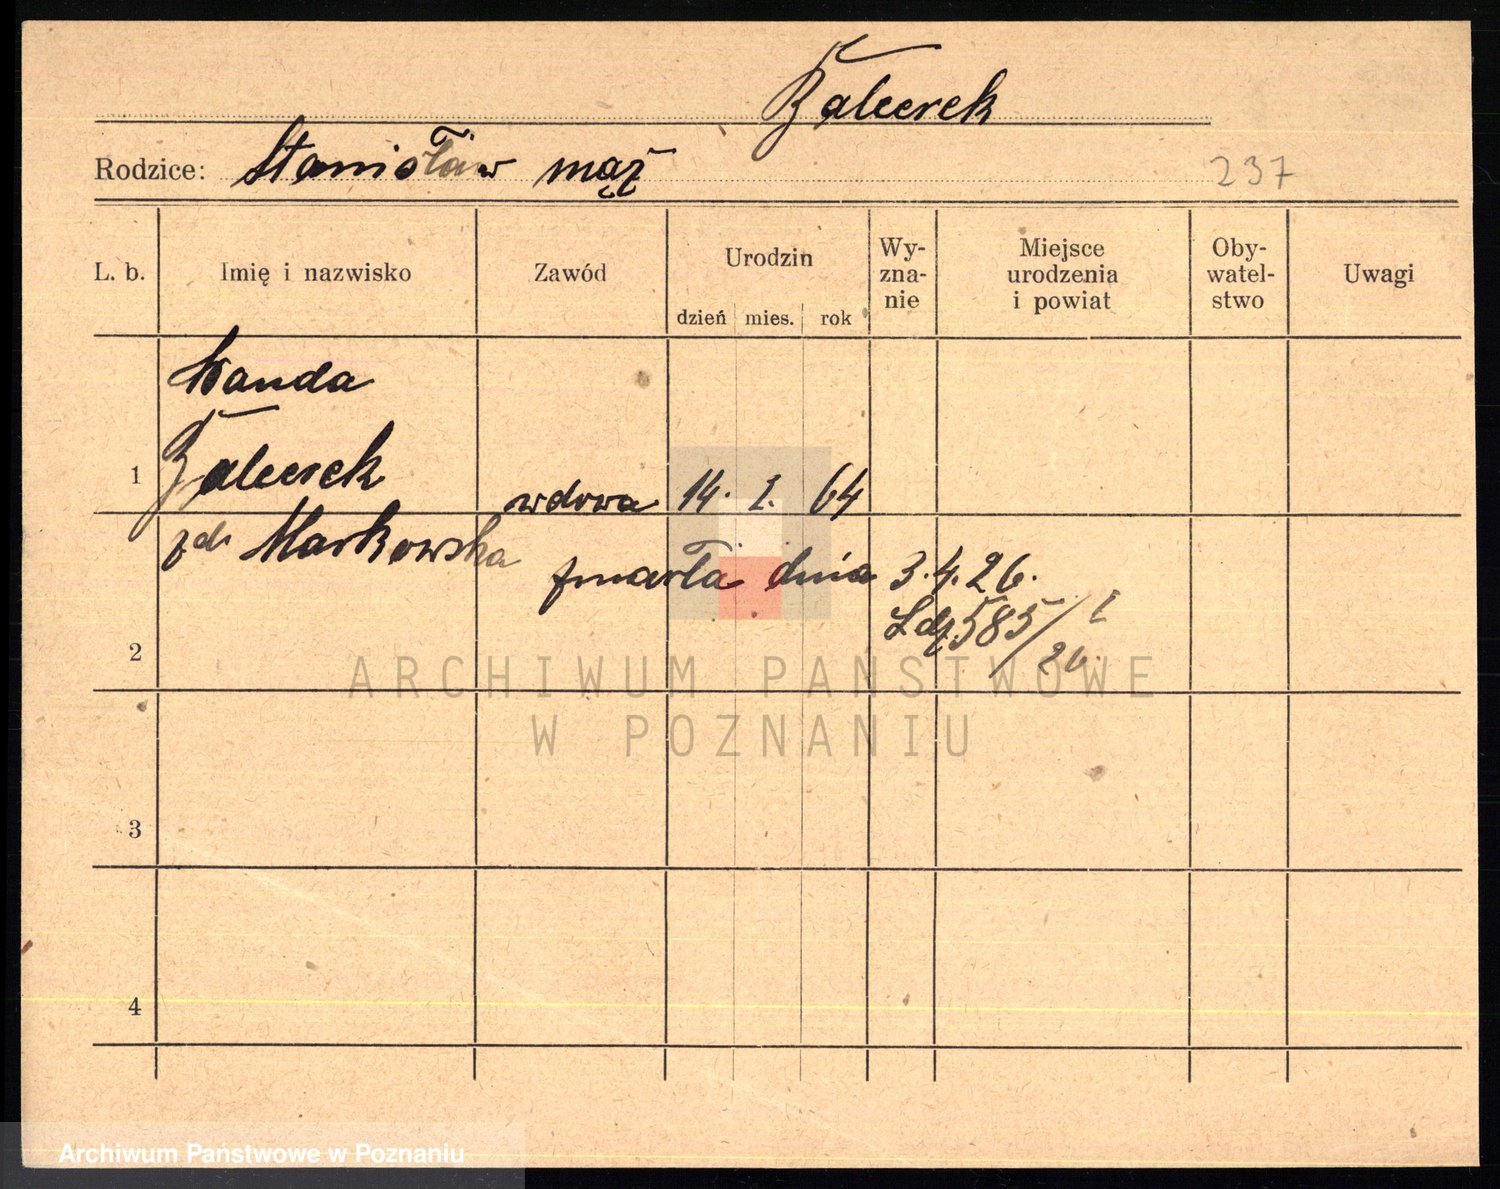 Balcerek
Rodzice: Stanisław mąż
237
L. b. Imię i nazwisko Zawód Urodzin dzień mies. rok Wy-zna-nie Miejsce urodzenia i powiat Oby-watel-stwo Uwagi
Wanda
Balcerek
1 wdowa 14. I. 64
zd. Markowska
zmarła dnia 3.4.26.
L dz 585/I
26.
2
ARCHIWUM PAŃSTWOWE
W POZNANIU
3
4
Archiwum Państwowe w Poznaniu